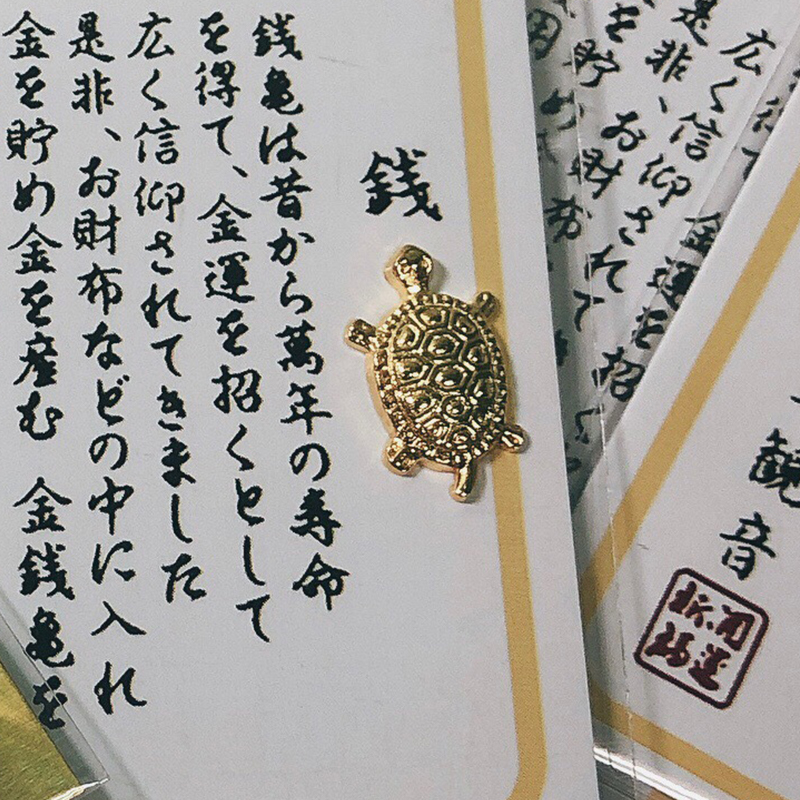 銭
銭亀は昔から萬年の寿命
を得て、金運を招くとして
広く信仰されてきました
是非、お財布などの中に入れ
金を貯め金を産む 金銭亀を
広く信仰されて
是非、お財布
観音
開運
祈福